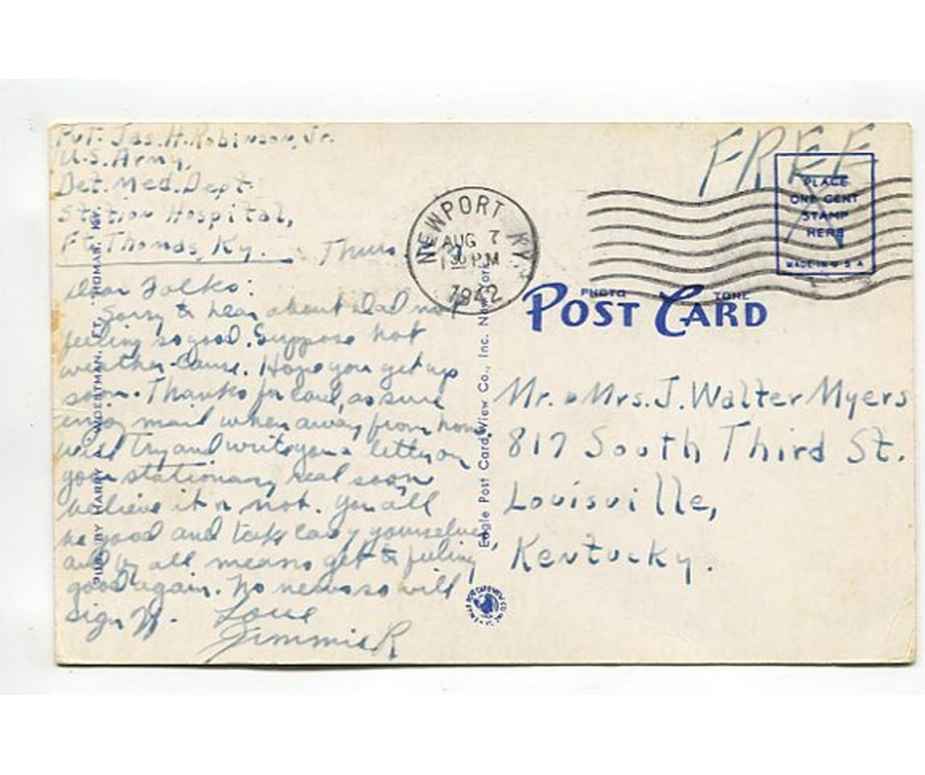 Pvt. Jas. H. Robinson, Jr.
U.S. Army,
Det. Med. Dept.
Station Hospital,
Ft. Thomas, Ky. Thurs.
Dear Folks:
Sorry to hear about Dad not
feeling so good. Suppose hot
weather cause. Hope you get up
soon. Thanks for card, as sure
enjoy mail when away from home
will try and write you a letter on
your stationary real soon,
believe it or not. You all
be good and take care of yourselves,
and by all means get to feeling
good again. No news so will
sign off. Love
Jimmie R
NEWPORT KY.
AUG 7
1 30 PM
1942
FREE
PLACE
ONE CENT
STAMP
HERE
MADE IN U S A
PHOTO TONE
POST CARD
Mr. & Mrs. J. Walter Myers
817 South Third St.
Louisville,
Kentucky.
PUB. BY HARRY FT. THOMAS, KY.
Eagle Post Card View Co., Inc. New York